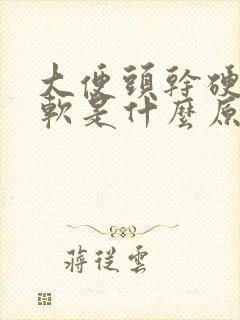 大便頭幹硬
軟是什麼原
蔣從雲